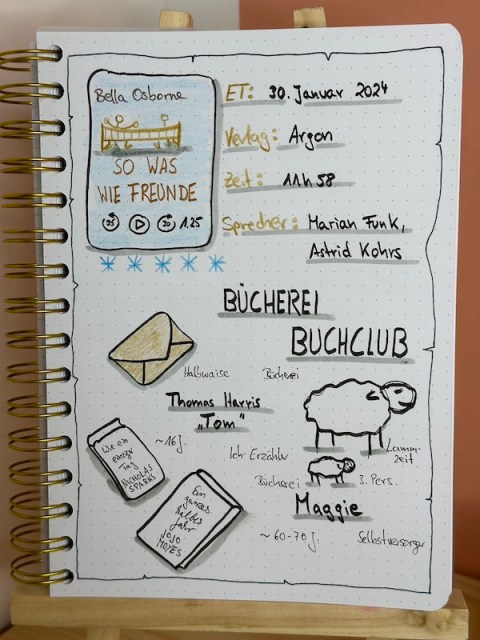 Bella Osborne
SO WAS
WIE FREUNDE
1.25
ET: 30. Januar 2024
Verlag: Argon
Zeit: 11h 58
Sprecher: Marian Funk,
Astrid Kohrs
BÜCHEREI
BUCHCLUB
Halbwaise
Bücherei
Thomas Harris
"Tom"
~16 J.
Ich-Erzähler
Wie ein
einziger
Tag
NICHOLAS
SPARKS
Ein
ganzes
halbes
Jahr
JOJO
MOYES
Lamm-
zeit
Bücherei
3. Pers.
Maggie
~60-70 J.
Selbstversorger